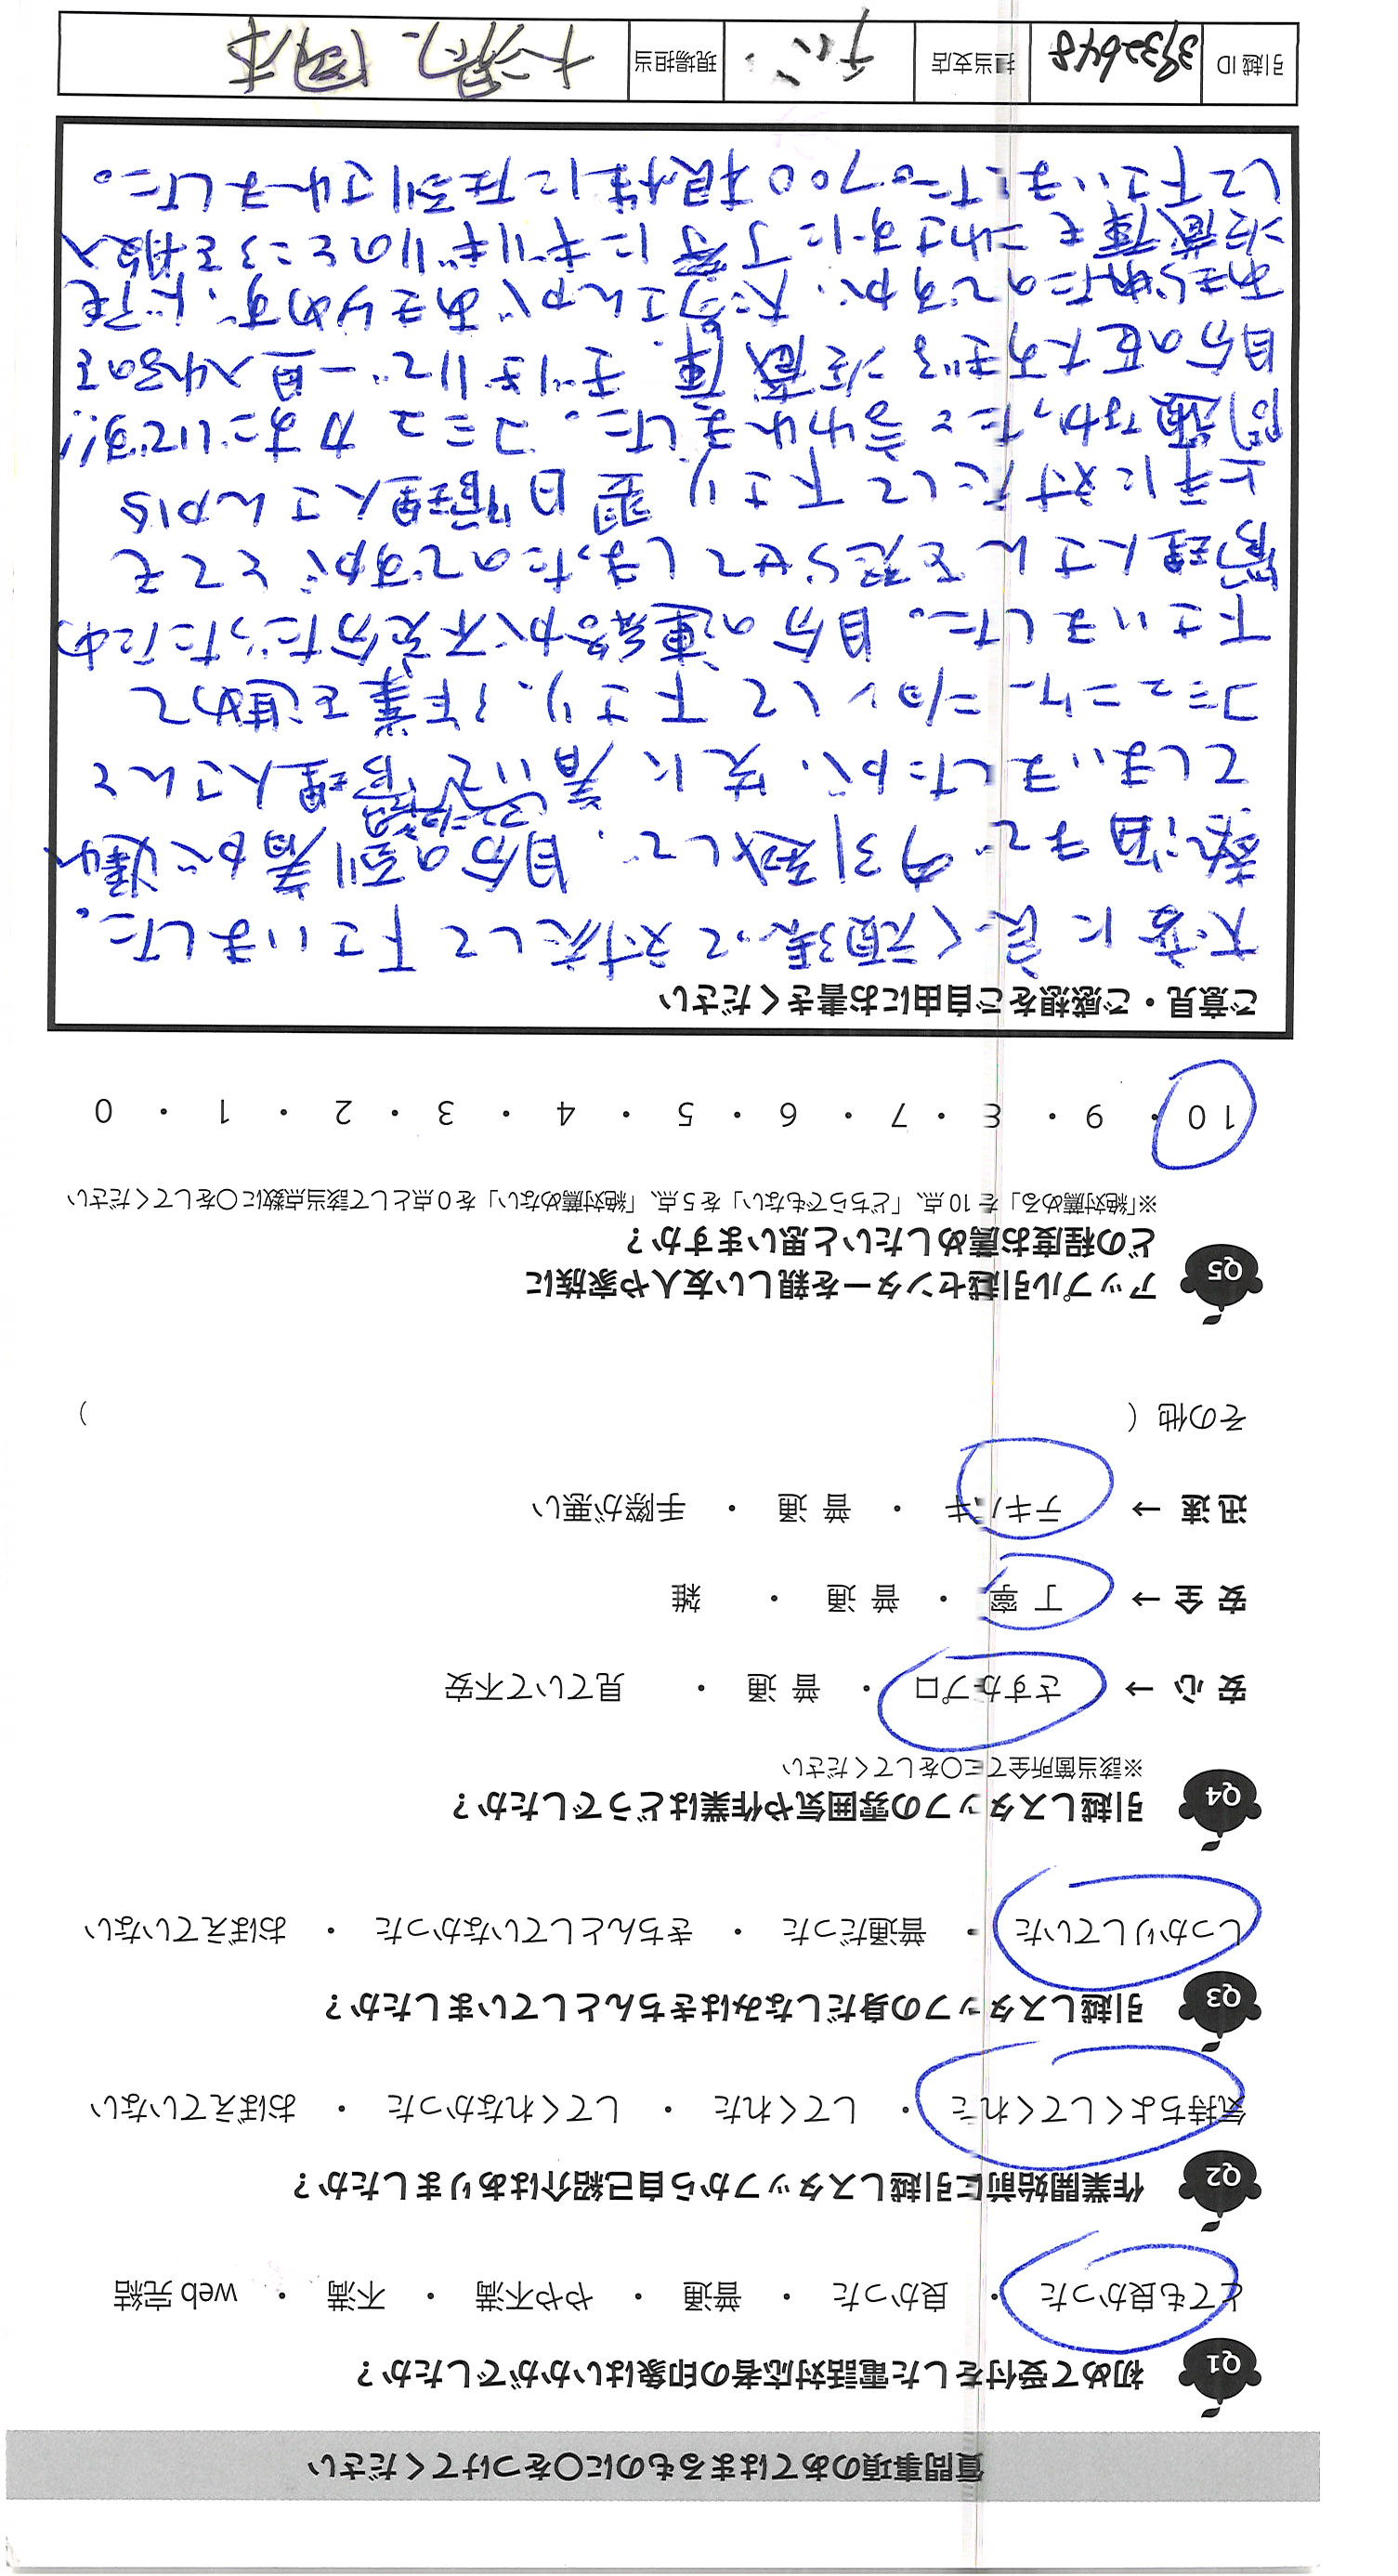 質問事項のあてはまるものに○をつけてください
Q1 初めて受付をした電話対応者の印象はいかがでしたか？
とても良かった ・ 良かった ・ 普通 ・ やや不満 ・ 不満 ・ web 完結
Q2 作業開始前に引越しスタッフから自己紹介はありましたか？
気持ちよくしてくれた ・ してくれた ・ してくれなかった ・ おぼえていない
Q3 引越しスタッフの身だしなみはきちんとしていましたか？
しっかりしていた ・ 普通だった ・ きちんとしていなかった ・ おぼえていない
Q4 引越しスタッフの雰囲気や作業はどうでしたか？
※該当箇所全てに○をしてください
安 心 → さすがプロ ・ 普 通 ・ 見ていて不安
安 全 → 丁 寧 ・ 普 通 ・ 雑
迅 速 → テキパキ ・ 普 通 ・ 手際が悪い
その他（ ）
Q5 アップル引越センターを親しい友人や家族に
どの程度お薦めしたいと思いますか？
※「絶対薦める」を 10 点、「どちらでもない」を 5 点、「絶対薦めない」を 0 点として該当点数に○をしてください
10 ・ 9 ・ 8 ・ 7 ・ 6 ・ 5 ・ 4 ・ 3 ・ 2 ・ 1 ・ 0
ご意見・ご感想をご自由にお書きください
大変に良く頑張って対応して下さいました。
新潟までの引越しで、自分の到着が遅れ
てしまいましたが、先に着いて管理人さんと
コミュニケーションして下さり、作業を進めて
下さいました。自分の連絡が不充分だったため
管理人さんを怒らせてしまったのですが とても
上手に対応して下さり 翌日管理人さんから
問題なかったと言われました。コミュ力すごいです!!
自分の巨大すぎる冷蔵庫、ギリギリで一旦入れるのを
あきらめたのですが、大男さんがあきらめず、ドアも
冷蔵庫もこわさずに丁寧にギリギリのところを搬入
して下さいました。プロの根性に圧倒されました。
引越 ID 3932648 担当支店 千ば 現場担当 大男、岡本